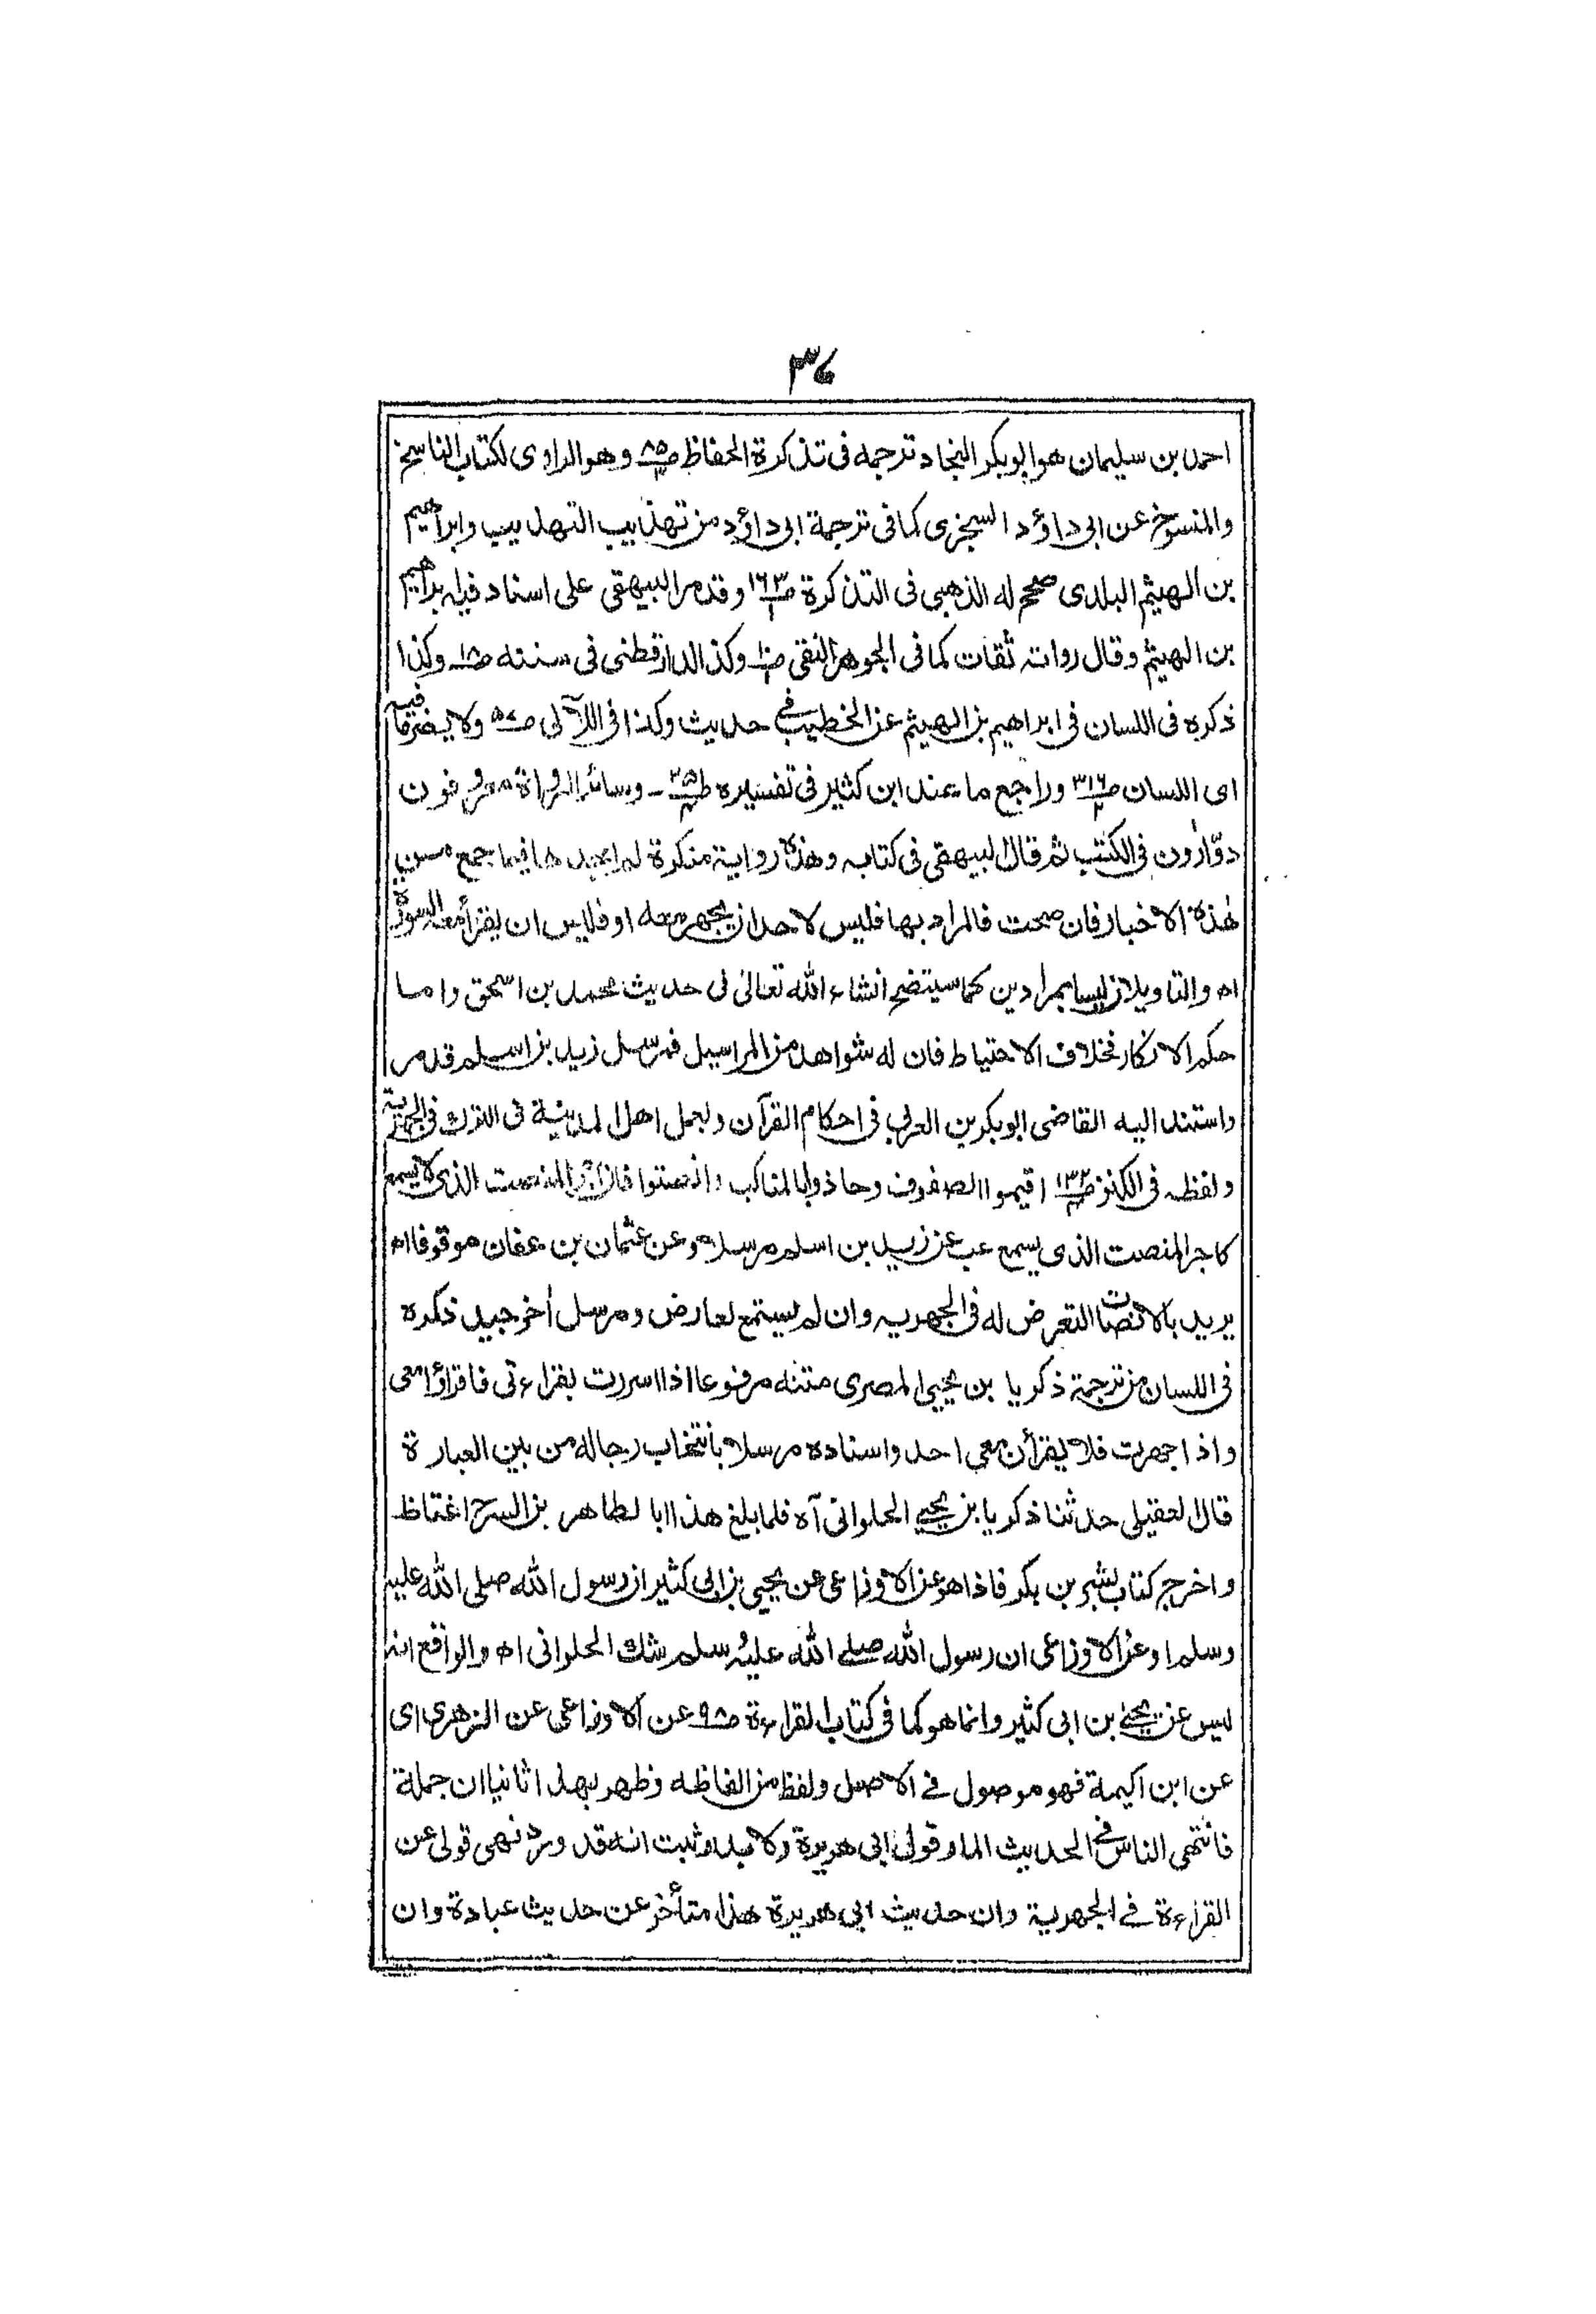 ٣٦
احمد بن سليمان هو ابو بكر النجاد ترجمه فى تذكرة الحفاظ ص٨٥ وهو الراوى لكتاب الناسخ
والمنسوخ عن ابى داؤد السجزى كما فى ترجمة ابى داؤد من تهذيب التهذيب وابراهيم
بن الهيثم البلدى صحح له الذهبى فى التذكرة ص١٦٣ وقد مر البيهقى على اسناد فيه ابراهيم
بن الهيثم وقال رواته ثقات كما فى الجوهر النقى وكذا الدارقطنى فى سننه وكذا
ذكره فى اللسان فى ابراهيم بن الهيثم عن الخطيب فى حديث وكذا فى اللآلى ولا يضر ما فيه
اى اللسان ص٣١٦ وراجع ما عند ابن كثير فى تفسيره وسائر الرواة معروفون
دوّارون فى الكتب ثم قال البيهقى فى كتابه وهذه رواية منكرة لم اجدها فيما جمع من
هٰذه الاخبار فان صحت فالمراد بها فليس لاحد ان يجهر معه او فليس ان يقرأ معه السورة
اه والتاويلان ليسا بمرادين كما سيتضح انشاء الله تعالىٰ فى حديث محمد بن اسحق واما
حكم الانكار فخلاف الاحتياط فان له شواهد من المراسيل فمرسل زيد بن اسلم قد مر
واستند اليه القاضى ابو بكر بن العربى فى احكام القرآن ولعمل اهل المدينة فى الترك فى الجهرية
ولفظه فى الكنز ص١٣٢ اقيموا الصفوف وحاذوا بالمناكب وانصتوا فان اجر المنصت الذى لا يسمع
كاجر المنصت الذى يسمع عب عن زيد بن اسلم مرسلا وعن عثمان بن عفان موقوفا اه
يريد بالانصات التعرض له فى الجهرية وان لم يستمع لعارض ومرسل اٰخر جيد ذكره
فى اللسان من ترجمة ذكريا بن يحيى المصرى متنه مرفوعا اذا اسررت بقراءتى فاقرأوا معى
واذا جهرت فلا يقرأن معى احد واسناده مرسلا بانتخاب رجاله من بين العبارة
قال العقيلى حدثنا ذكريا بن يحيى الحلوانى آه فلما بلغ هذا ابا الطاهر بن السرح اغتاظ
واخرج كتاب بشر بن بكر فاذا هو عن الاوزاعى عن يحيى بن ابى كثير ان رسول الله صلى الله عليه
وسلم او عن الاوزاعى ان رسول الله صلى الله عليه وسلم شك الحلوانى اه والواقع انه
ليس عن يحيىٰ بن ابى كثير وانما هو كما فى كتاب القراءة ص٩٨ عن الاوزاعى عن الزهرى اى
عن ابن اكيمة فهو موصول فى الاصل ولفظ من الفاظه وظهر بهذا ثانيا ان جملة
فانتهى الناس فى الحديث المار قول ابى هريرة ولا بد وثبت انه قد ورد نهى قولى عن
القراءة فى الجهرية وان حديث ابى هريرة هذا متأخر عن حديث عبادة وان